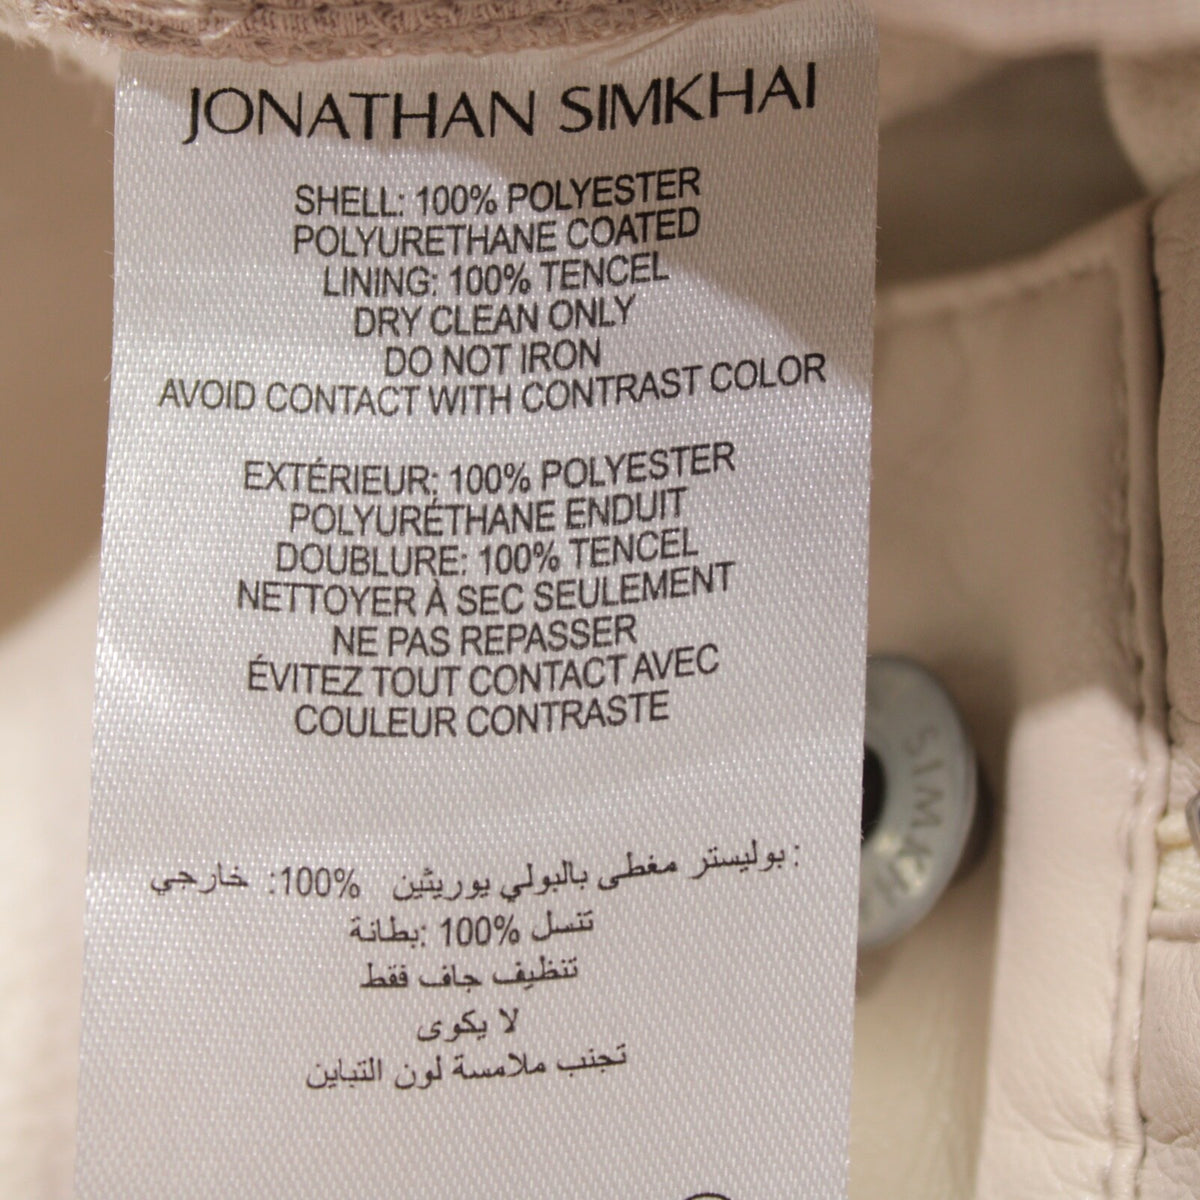 JONATHAN SIMKHAI
SHELL: 100% POLYESTER
POLYURETHANE COATED
LINING: 100% TENCEL
DRY CLEAN ONLY
DO NOT IRON
AVOID CONTACT WITH CONTRAST COLOR
EXTÉRIEUR: 100% POLYESTER
POLYURÉTHANE ENDUIT
DOUBLURE: 100% TENCEL
NETTOYER À SEC SEULEMENT
NE PAS REPASSER
ÉVITEZ TOUT CONTACT AVEC
COULEUR CONTRASTE
: بوليستر مغطى بالبولي يوريثين 100%: خارجي
تنسل 100% :بطانة
تنظيف جاف فقط
لا يكوى
تجنب ملامسة لون التباين
SIMKH